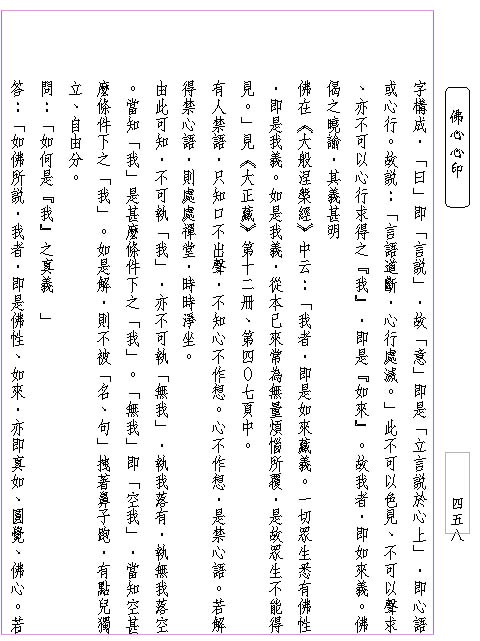 佛心心印
字構成，「曰」即「言說」，故「意」即是「立言說於心上」，即心語
或心行。故說：「言語道斷，心行處滅。」此不可以色見、不可以聲求
、亦不可以心行求得之『我』，即是『如來』。故我者，即如來義。佛
偈之曉諭，其義甚明
佛在《大般涅槃經》中云：「我者，即是如來藏義。一切眾生悉有佛性
，即是我義。如是我義，從本已來常為無量煩惱所覆，是故眾生不能得
見。」見《大正藏》第十二冊、第四０七頁中。
有人禁語，只知口不出聲，不知心不作想。心不作想，是禁心語。若解
得禁心語，則處處禪堂，時時淨坐。
由此可知，不可執「我」，亦不可執「無我」，執我落有，執無我落空
。當知「我」是甚麼條件下之「我」。「無我」即「空我」，當知空甚
麼條件下之「我」。如是解，則不被「名、句」拽著鼻子跑，有點兒獨
立、自由分。
問：「如何是『我』之真義　」
答：「如佛所說，我者，即是佛性、如來，亦即真如、圓覺、佛心。若
四五八